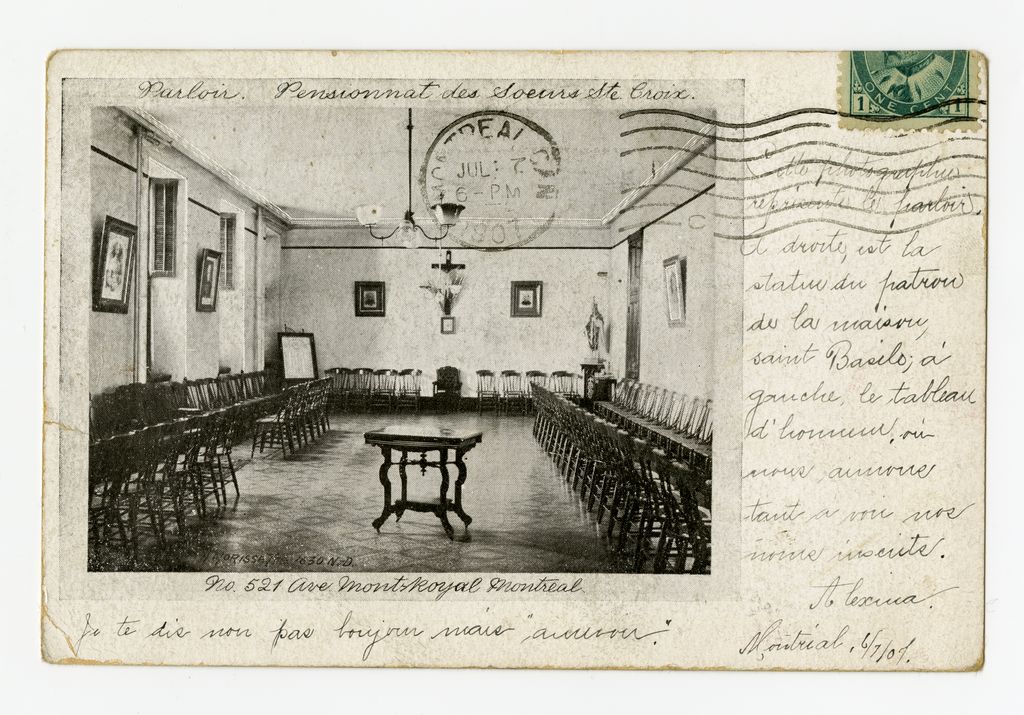 Parloir. Pensionnat des Soeurs Ste Croix.
MONTREAL CAN
JUL 7
6-PM
1907
ONE CENT
1 1
Cette photographie
représente le parloir.
A droite, est la
statue du patron
de la maison,
saint Basile; à
gauche, le tableau
d'honneur, où
nous aimons
tant a voir nos
noms inscrits.
Alexina.
Montréal, 6/7/07.
1630 N.D.
No. 521 Ave Mont-Royal Montreal
Je te dis non pas bonjour mais "aurevoir."